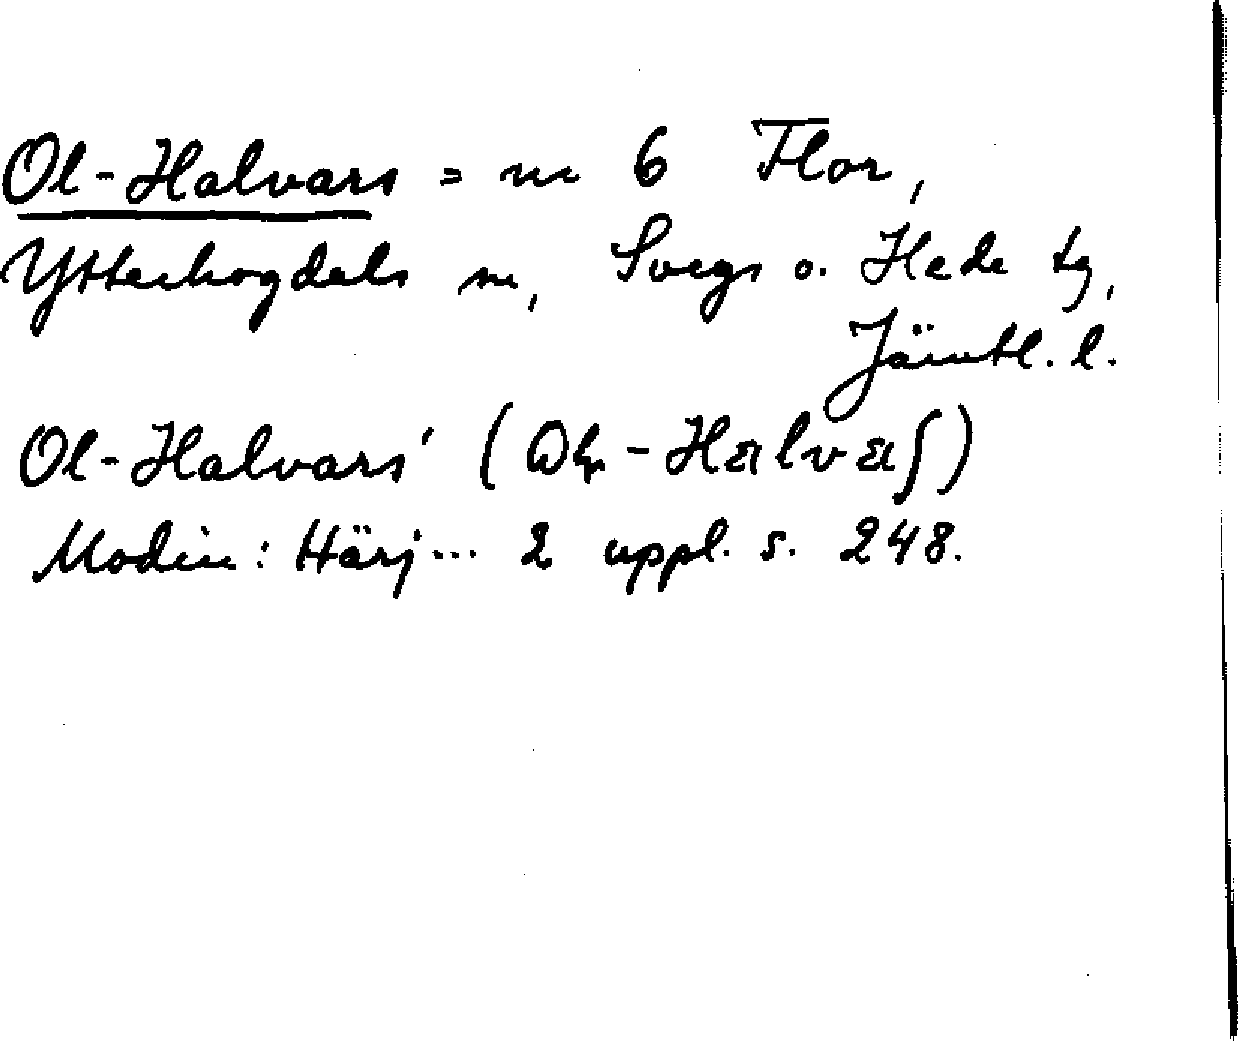 Ol-Halvars = nr 6 Flor,
Ytterhogdals sn, Svegs o. Hede tg,
Jämtl. l.
Ol-Halvars' ( -Halvaʃ)
Modin: Härj... 2 uppl. s. 248.